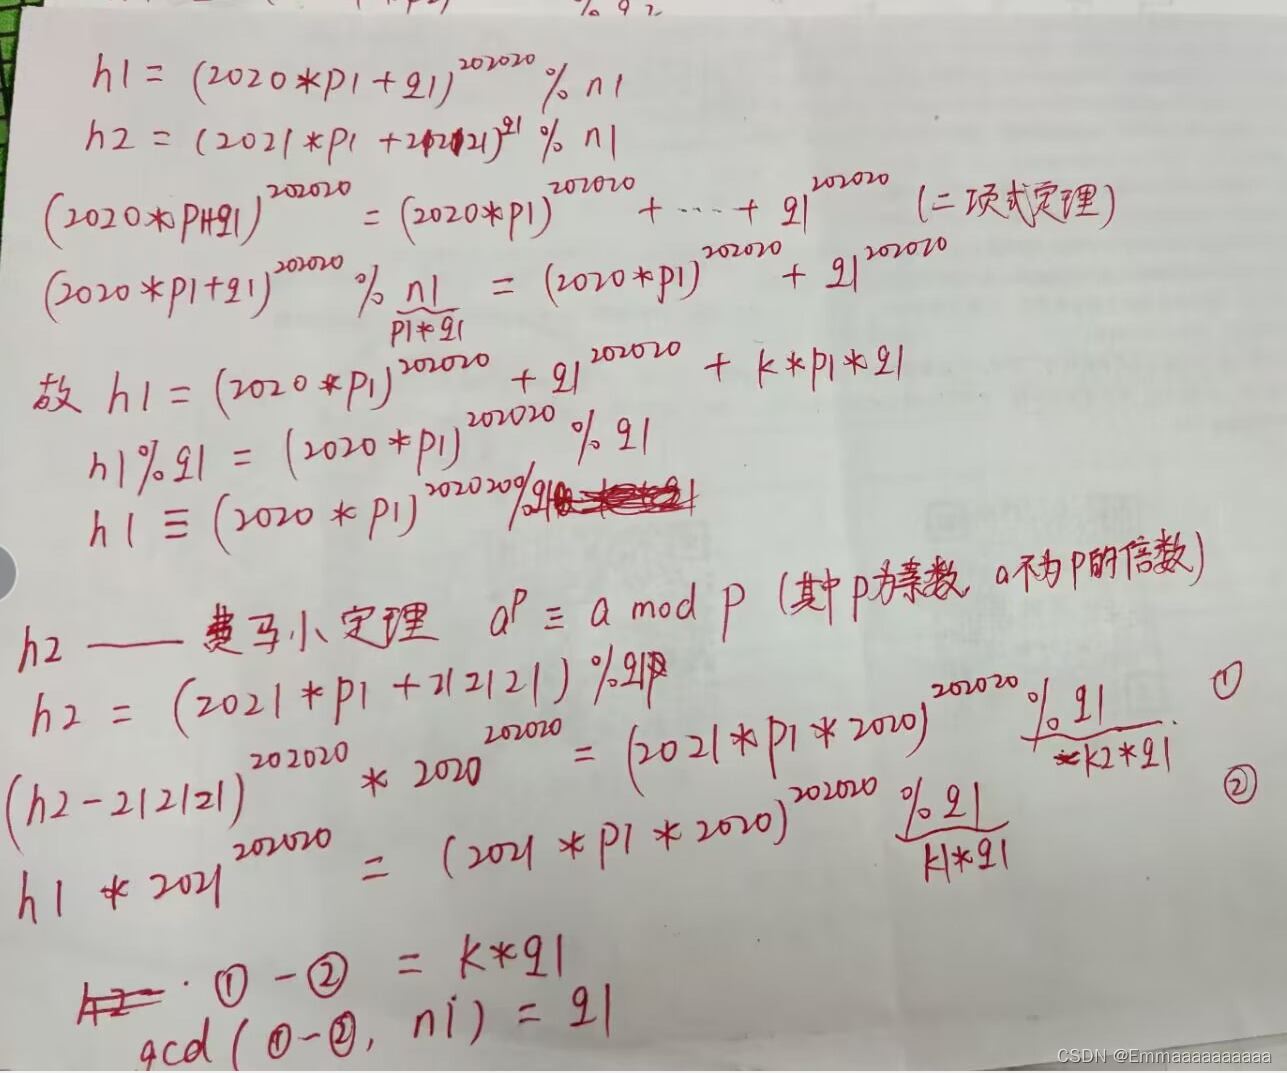 h1 = (2020*p1+q1)^202020 % n1
h2 = (2021*p1+212121)^q1 % n1
(2020*p1+q1)^202020 = (2020*p1)^202020 + ... + q1^202020 (二项式定理)
(2020*p1+q1)^202020 % n1 = (2020*p1)^202020 + q1^202020
p1*q1
故 h1 = (2020*p1)^202020 + q1^202020 + k*p1*q1
h1%q1 = (2020*p1)^202020 % q1
h1 ≡ (2020*p1)^202020 % q1
h2 —— 费马小定理 a^p ≡ a mod p (其中p为素数 a不为p的倍数)
h2 = (2021*p1+212121) %q1
(h2-212121)^202020 * 2020^202020 = (2021*p1*2020)^202020 % q1 ①
k2*q1
h1 * 2021^202020 = (2021*p1*2020)^202020 % q1 ②
k1*q1
① - ② = k*q1
gcd(①-②, n1) = q1
CSDN @Emmaaaaaaaaaa